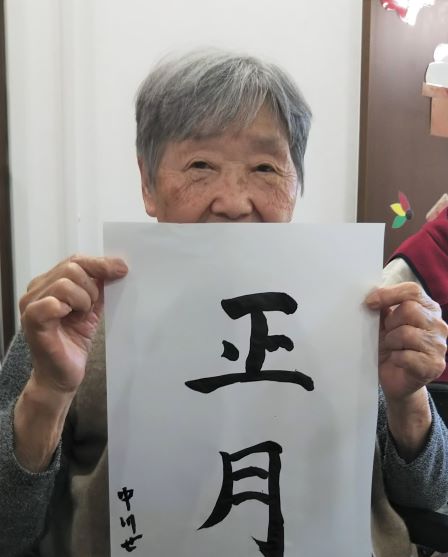 正月
中川せ